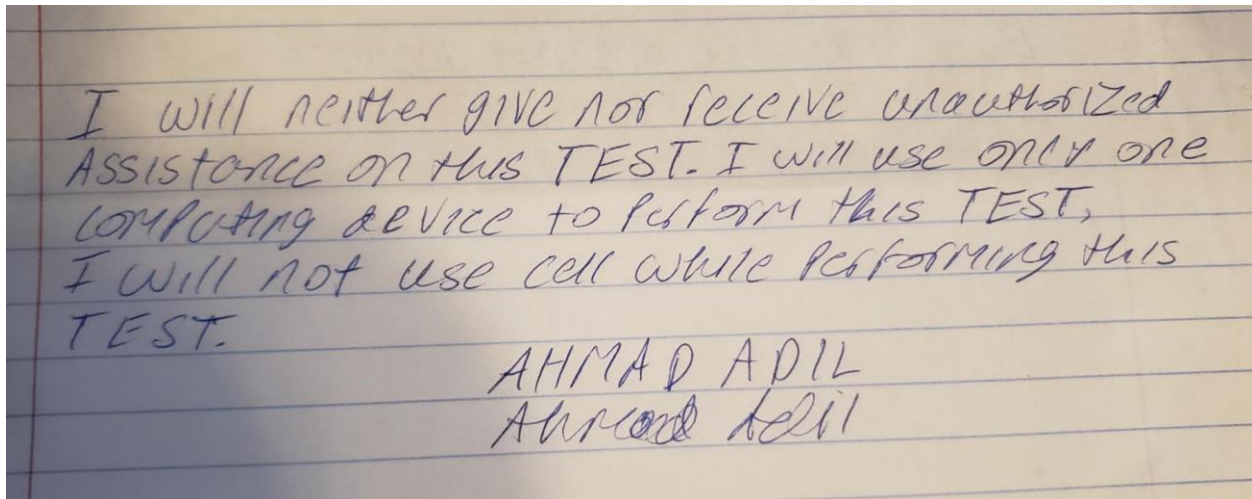 I will neither give nor receive unauthorized
Assistance on this TEST. I will use only one
computing device to perform this TEST,
I will not use cell while performing this
TEST.
AHMAD ADIL
Ahmad Adil